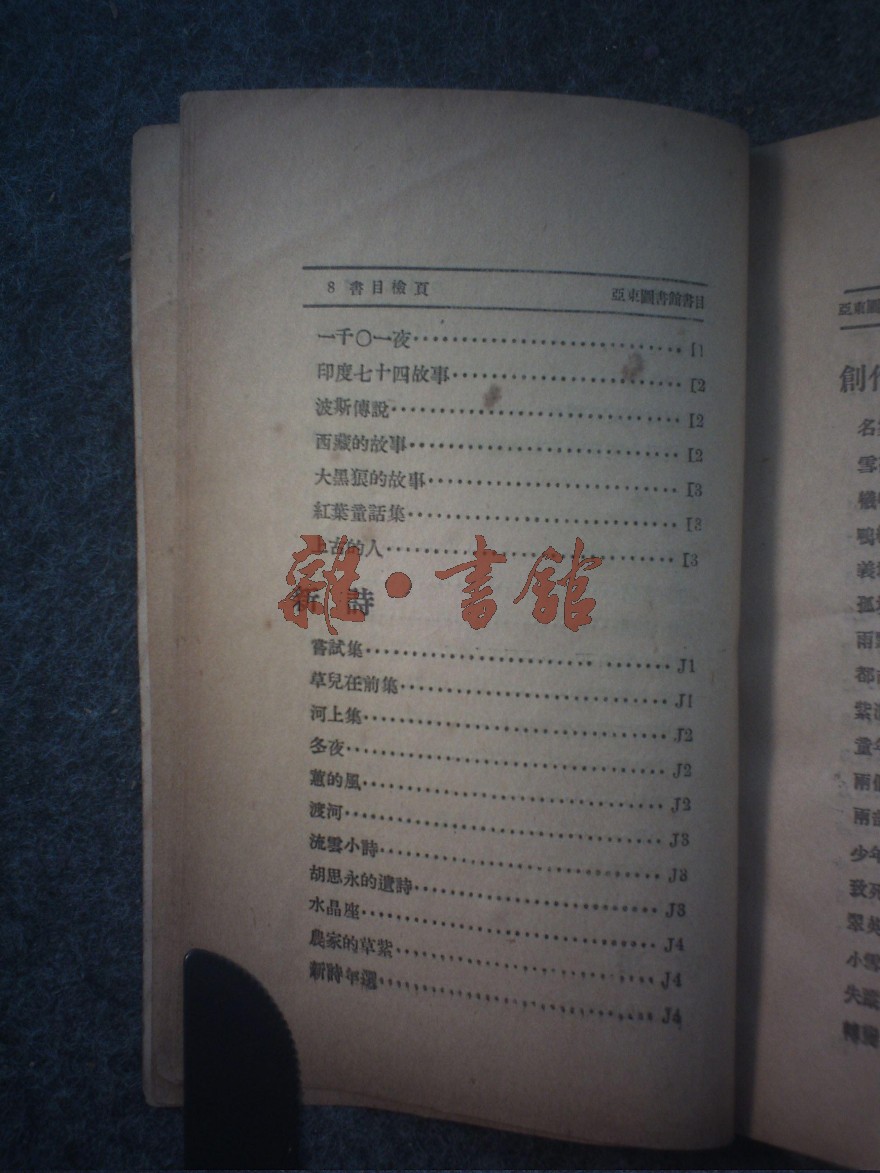 8 書目檢頁 亞東圖書館書目
一千〇一夜 I1
印度七十四故事 I2
波斯傳說 I2
西藏的故事 I2
大黑狼的故事 I3
紅葉童話集 I3
上古的人 I3
雜·書館
新詩
嘗試集 J1
草兒在前集 J1
河上集 J2
冬夜 J2
蕙的風 J2
渡河 J3
流雲小詩 J3
胡思永的遺詩 J3
水晶座 J4
農家的草紫 J4
新詩年選 J4
亞東圖
創作
名
雪
鴨
義
孤
雨
都
紫
童年
兩個
兩
少年
致死
翠英
小雪
失蹤
轉變